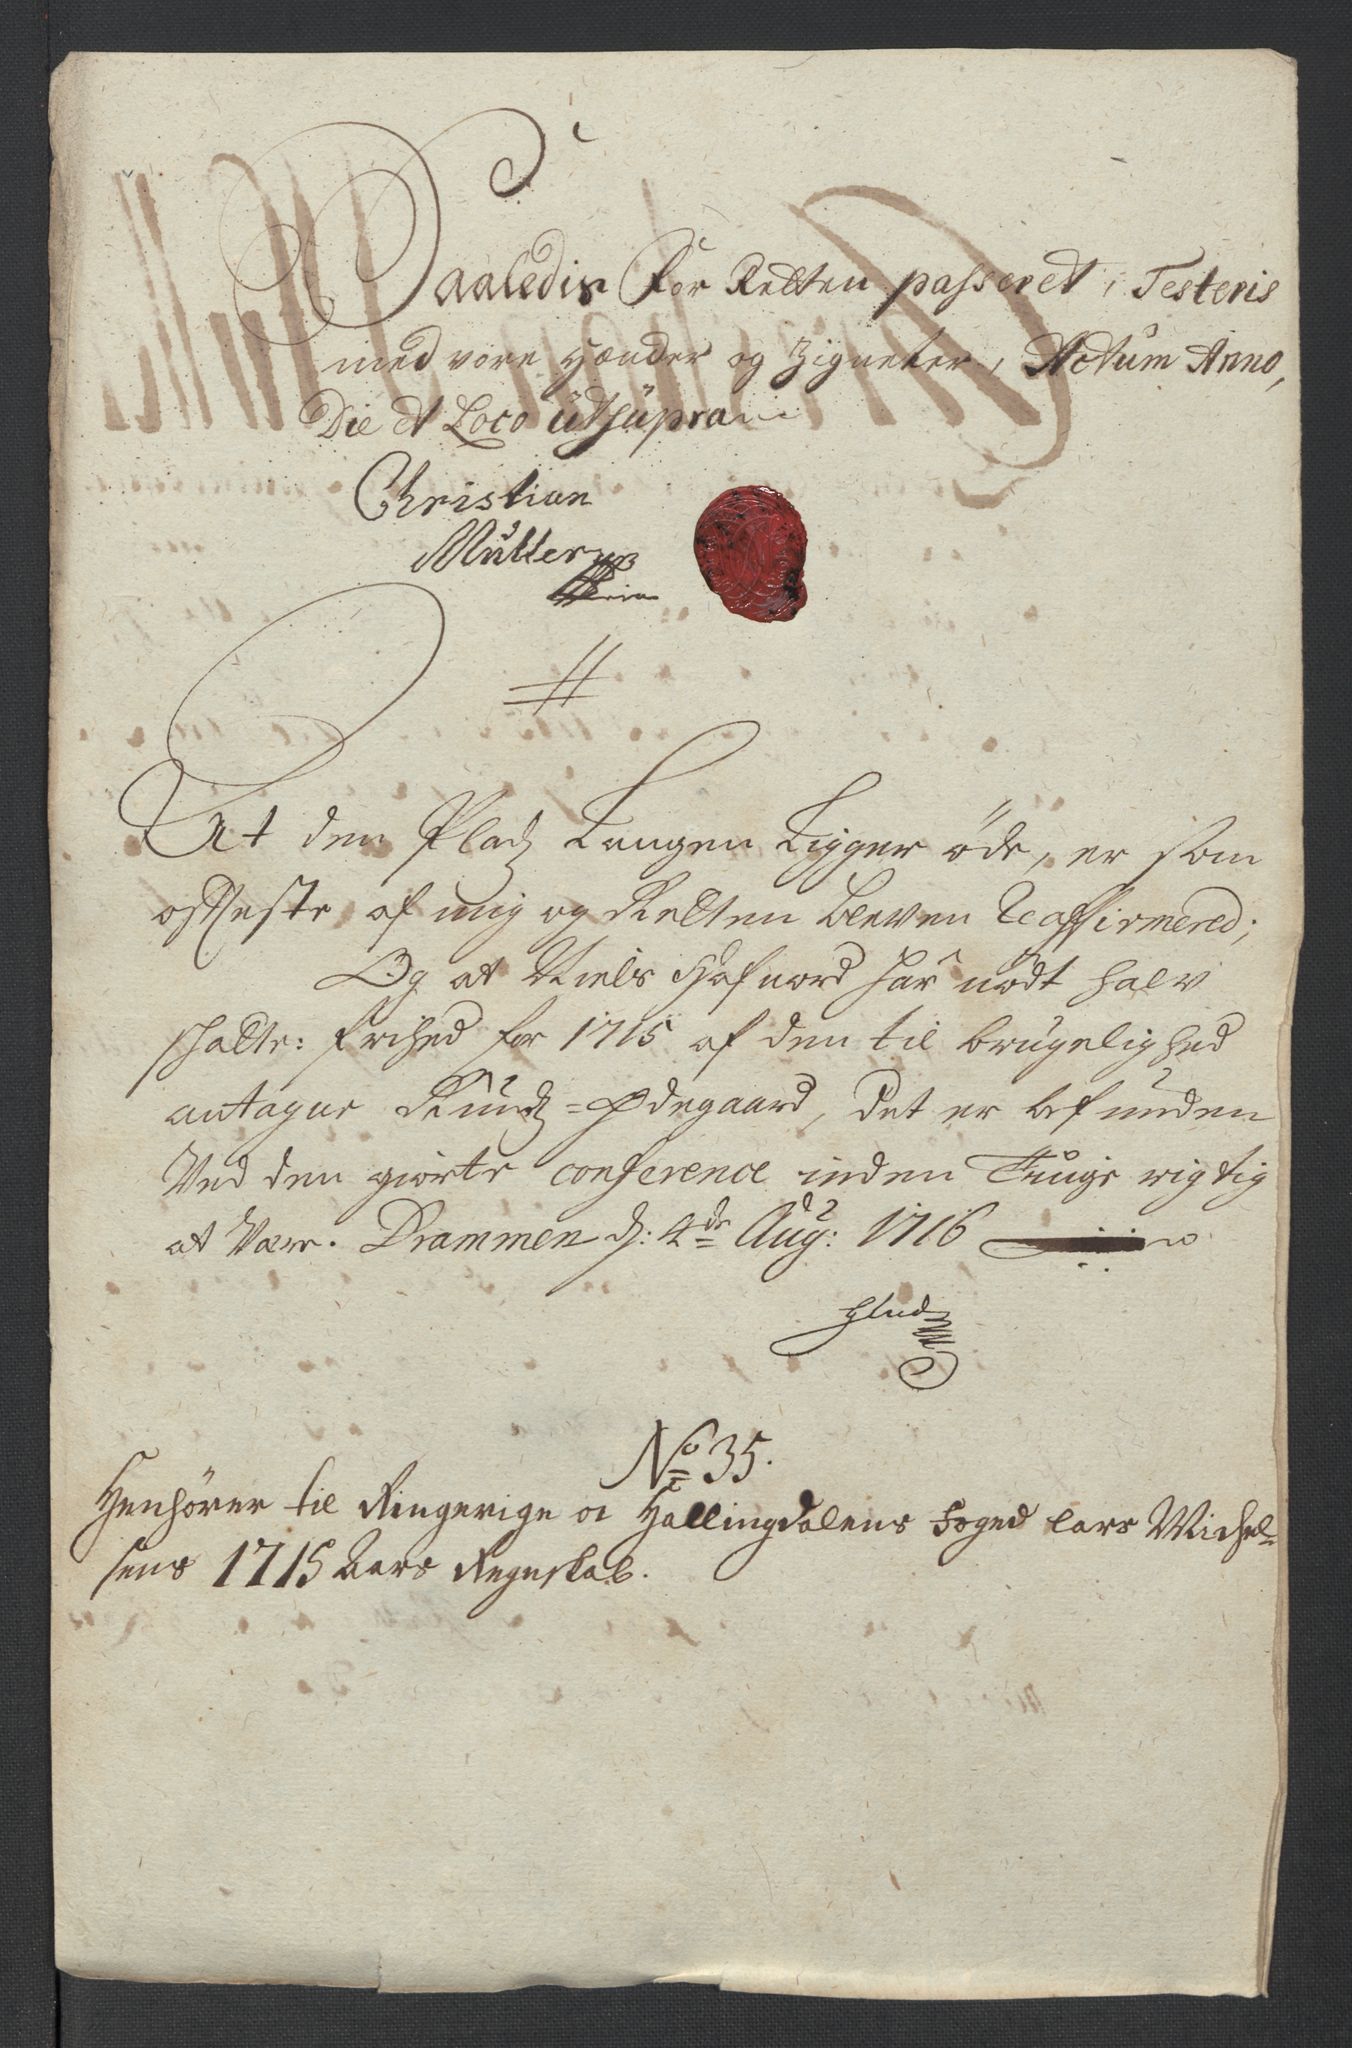 Saaledis for Retten passeret, Testeris
med vore Hænder og Zigneter, Actum Anno,
Die et Loco utsupra
Christian
Muller
At den Pladz Laugen Ligger öde, er som
oftteste af mig og Retten bleven Reaffirmered;
Og at Niels har nödt halv
schatte: frihed for 1715 af den til brugelighed
antagne Ruudz=Ödegaard, det er befunden
Ved den giorte conference inden Tinge rigtig
at Være. Drammen d: 4de Aug: 1716
No 35.
Henhörer til Ringerige oc Hallingdalens Foged Lars Michel-
sens 1715 Aars Regnskab.